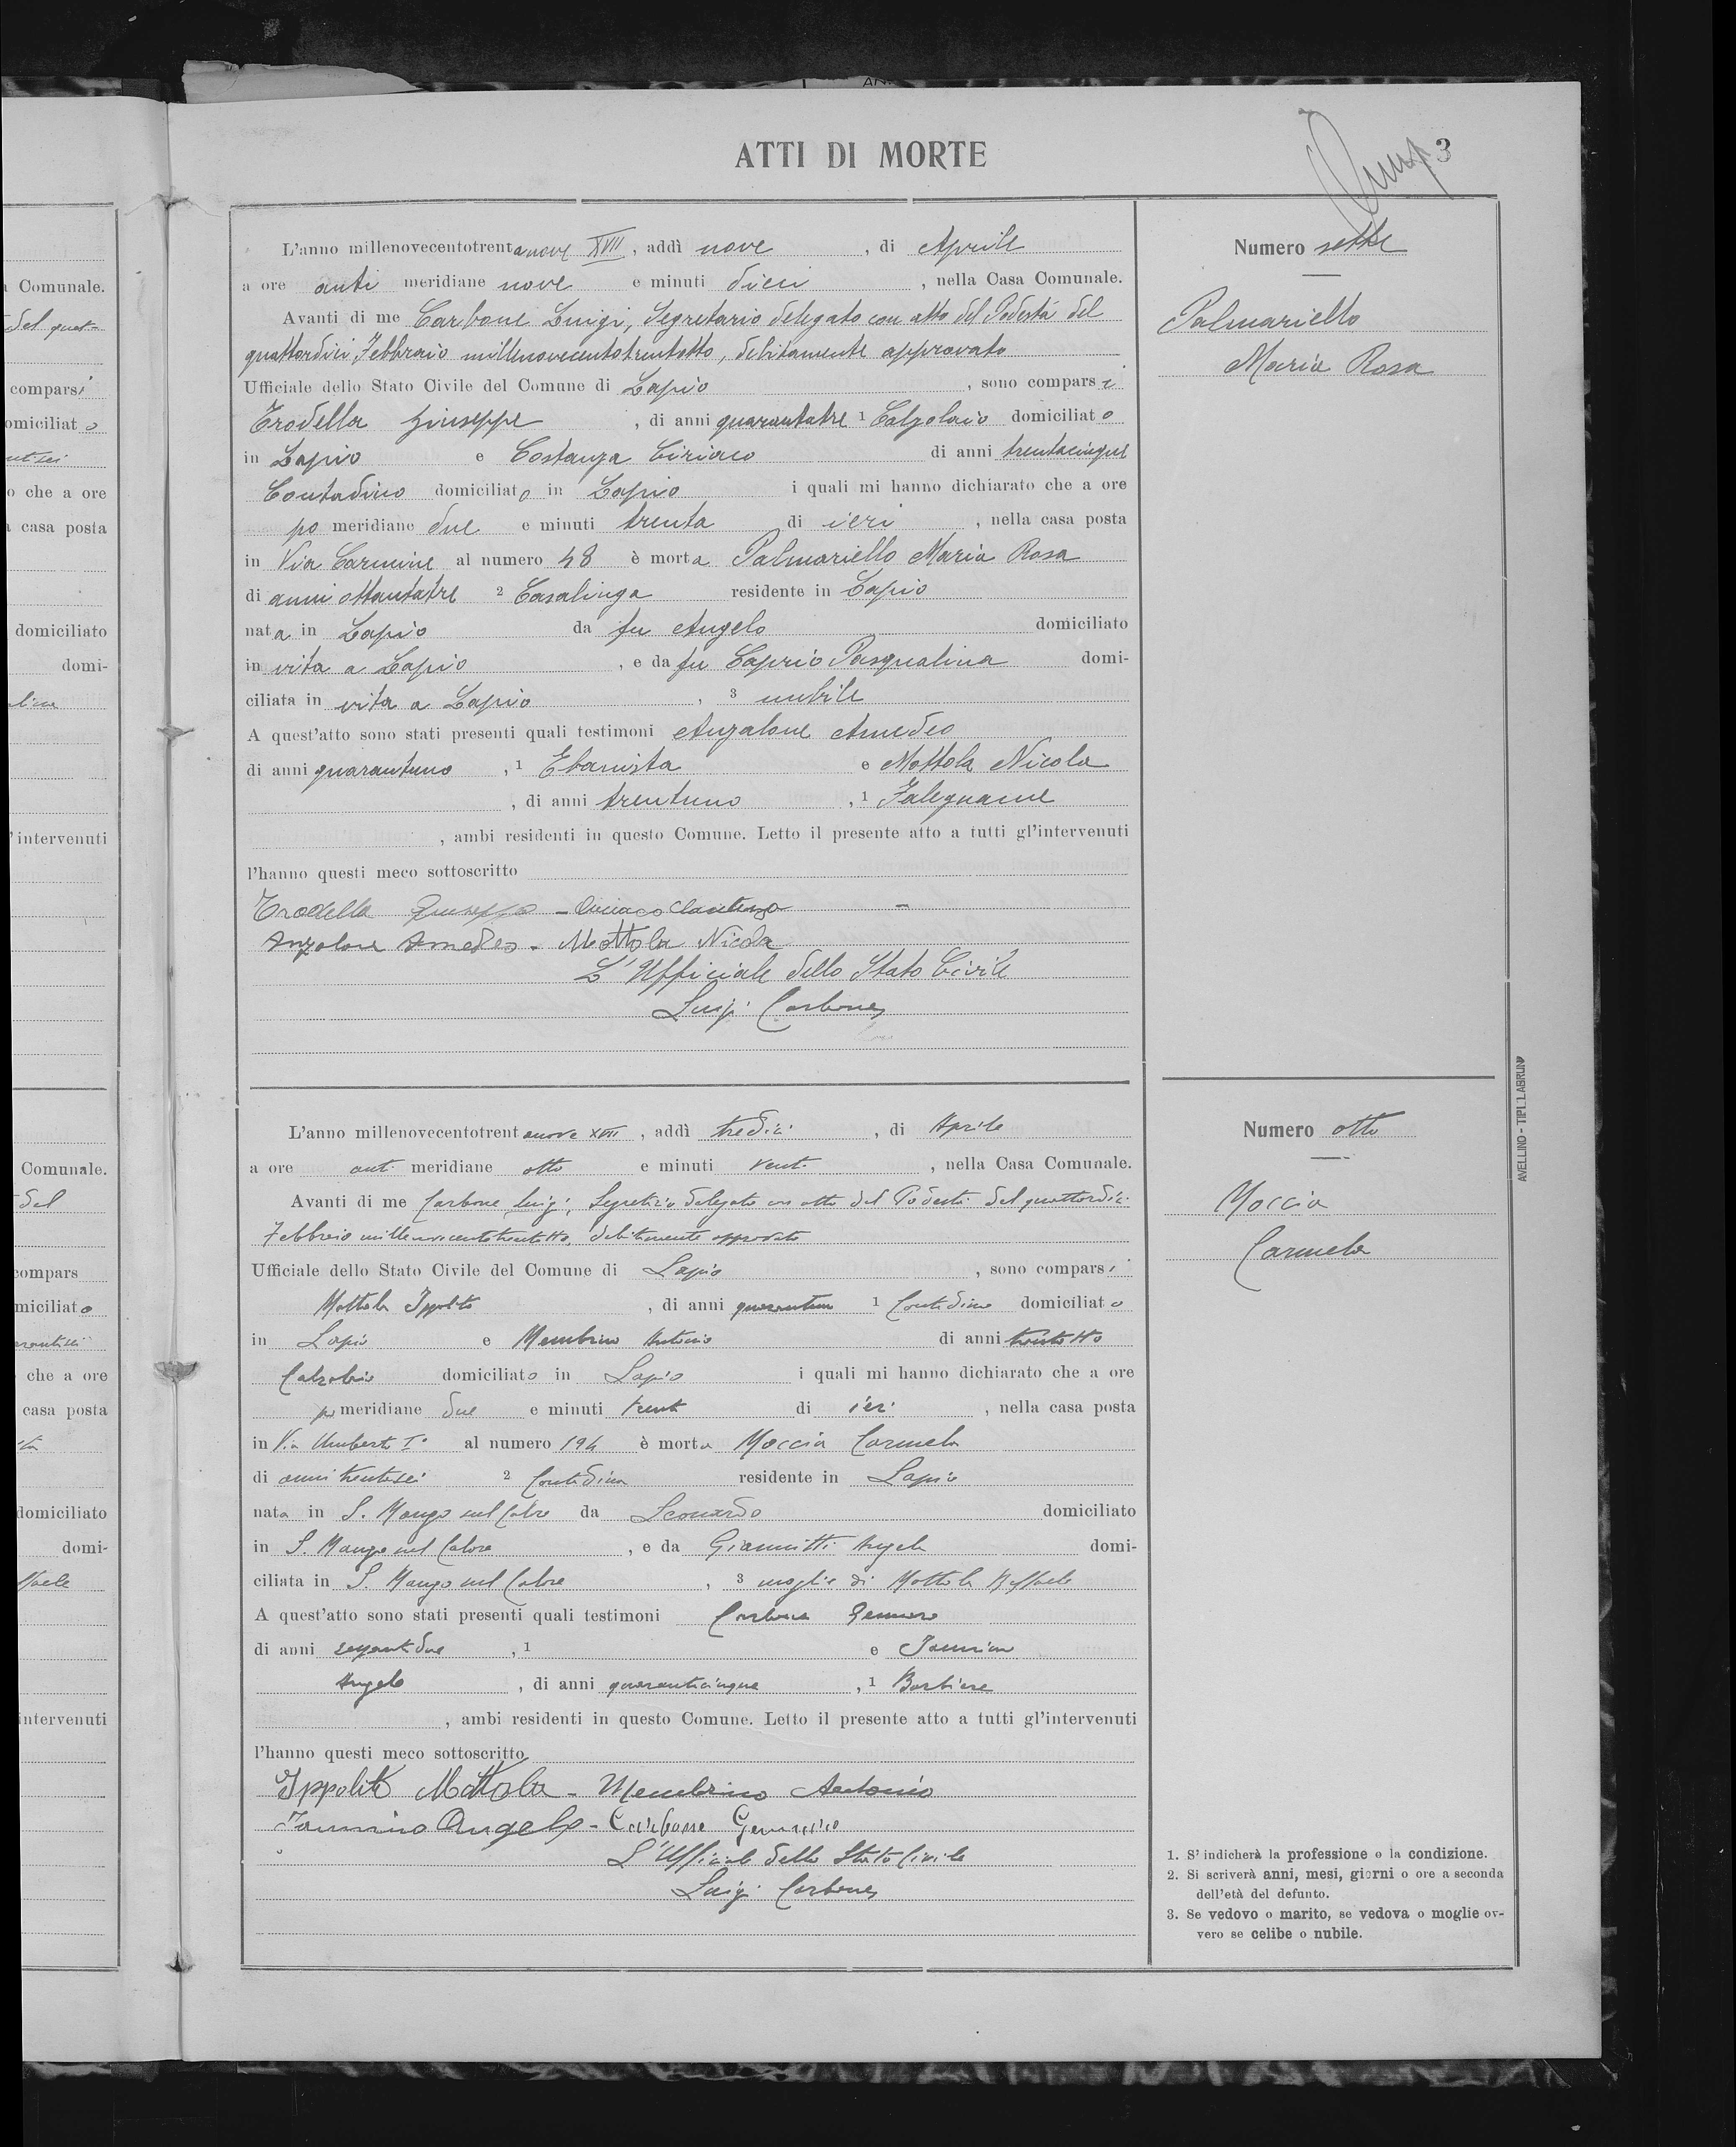 ATTI DI MORTE
3
L'anno millenovecentotrentanove XVII, addì nove, di Aprile
a ore anti meridiane nove e minuti dieci, nella Casa Comunale.
Avanti di me Carbone Luigi, Segretario delegato con atto del Podestà del
quattordici Febbraio millenovecentotrentotto, debitamente approvato
Ufficiale dello Stato Civile del Comune di Lapio, sono comparsi
Trodella Giuseppe, di anni quarantatre 1 Calzolaio domiciliato
in Lapio e Costanza Ciriaco di anni trentacinque
Contadino domiciliato in Lapio i quali mi hanno dichiarato che a ore
po meridiane due e minuti trenta di ieri, nella casa posta
in Via Carmine al numero 48 è morta Palmariello Maria Rosa
di anni ottantatre 2 Casalinga residente in Lapio
nata in Lapio da fu Angelo domiciliato
in vita a Lapio, e da fu Caprio Pasqualina domi-
ciliata in vita a Lapio, 3 nubile
A quest'atto sono stati presenti quali testimoni Anzalone Amedeo
di anni quarantuno, 1 Ebanista e Mottola Nicola
, di anni trentuno, 1 Falegname
, ambi residenti in questo Comune. Letto il presente atto a tutti gl'intervenuti
l'hanno questi meco sottoscritto
Trodella Giuseppe - Ciriaco Costanza -
Anzalone Amedeo - Mottola Nicola
L'Ufficiale dello Stato Civile
Luigi Carbone
Numero sette
Palmariello
Maria Rosa
L'anno millenovecentotrentanove XVII, addì tredici, di Aprile
a ore ant. meridiane otto e minuti venti, nella Casa Comunale.
Avanti di me Carbone Luigi, Segretario delegato con atto del Podestà del quattordici
Febbraio millenovecentotrentotto, debitamente approvato
Ufficiale dello Stato Civile del Comune di Lapio, sono comparsi
Mottola Ippolito, di anni quarantuno 1 Contadino domiciliato
in Lapio e Membrino Antonio di anni trentotto
Calzolaio domiciliato in Lapio i quali mi hanno dichiarato che a ore
po meridiane due e minuti trenta di ieri, nella casa posta
in Via Umberto I° al numero 194 è morta Moccia Carmela
di anni trentasei 2 Contadina residente in Lapio
nata in S. Mango sul Calore da Leonardo domiciliato
in S. Mango sul Calore, e da Giannitti Angela domi-
ciliata in S. Mango sul Calore, 3 moglie di Mottola Raffaele
A quest'atto sono stati presenti quali testimoni Carbone Gennaro
di anni sessantadue, 1 e Iannino
Angelo, di anni quarantacinque, 1 Barbiere
, ambi residenti in questo Comune. Letto il presente atto a tutti gl'intervenuti
l'hanno questi meco sottoscritto
Ippolito Mottola - Membrino Antonio
Iannino Angelo - Carbone Gennaro
L'Ufficiale dello Stato Civile
Luigi Carbone
Numero otto
Moccia
Carmela
1. S'indicherà la professione o la condizione.
2. Si scriverà anni, mesi, giorni o ore a seconda
dell'età del defunto.
3. Se vedovo o marito, se vedova o moglie ov-
vero se celibe o nubile.